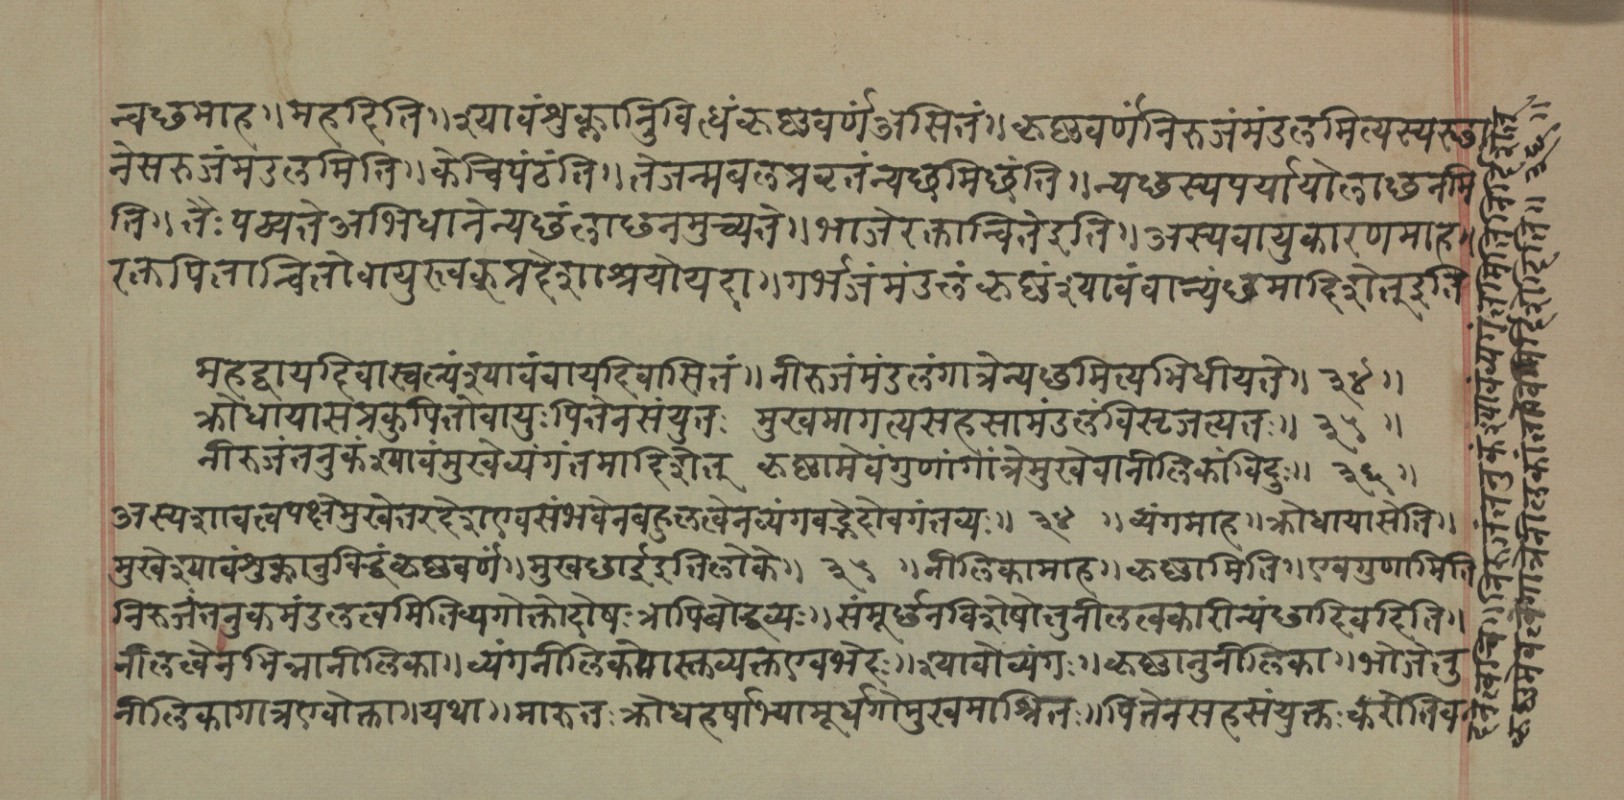 न्यछमाह॥महदिति॥श्यावंशुक्लानुविधंकृष्णवर्णंअसितं॥कृष्णवर्णंनिरुजंमंडलमित्यस्यस्छा
नेसरुजंमंडलमिति॥केचित्पठंति॥तेजन्मबलप्रवृतंन्यछमिछंति॥न्यछस्यपर्यायोलाछनमि
ति॥तैःपठ्यतेअभिधानेन्यछंलाछनमुच्यते॥भोजेरक्तान्वितेइति॥अस्यवायुकारणमाह॥
रक्तपितान्वितोवायुस्त्वक्प्रदेशाश्रयोयदा॥गर्भजंमंडलंकृष्णंश्यावंवान्यंछमादिशेत्इति
महद्वायदिवास्वल्पंश्यावंवायदिवासितं॥नीरुजंमंडलंगात्रेन्यछमित्यभिधीयते॥३४॥
क्रोधायासप्रकुपितोवायुःपित्तेनसंयुतः मुखमागत्यसहसामंडलंविसृजत्यतः॥३५॥
नीरुजंतनुकंश्यावंमुखेव्यंगंतमादिशेत् कृष्णामेवंगुणांगात्रेमुखेवानीलिकांविदुः॥३६॥
अस्यशावत्वपक्षेमुखेतरदेशएवसंभवेनबहुलत्वेनव्यंगवद्भेदोवगंतव्यः॥३४॥व्यंगमाह॥क्रोधायासेति॥
मुखेश्यावंशुक्लानुविद्धंकृष्णवर्णं॥मुखछाईइतिलोके॥३५॥नीलिकामाह॥कृष्णामिति॥एवगुणामिति
निरुजंतनुकमंडलत्वमितिव्यगोक्तोदोषःत्रापिबोद्धव्यः॥संमूर्छनविशेषोतुनीलत्वकारीन्यंछादिवदिति॥
नीलत्वेनभिन्नानीलिका॥व्यंगनीलिकयोस्तव्यक्तएवभेदः॥श्यावोव्यंगः॥कृष्णातुनीलिका॥भोजेतु
नीलिकागात्रएवोक्ता॥यथा॥मारुतःक्रोधहर्षाभ्यामूर्धगोमुखमाश्रितः॥पित्तेनसहसंयुक्तःकरोतिव